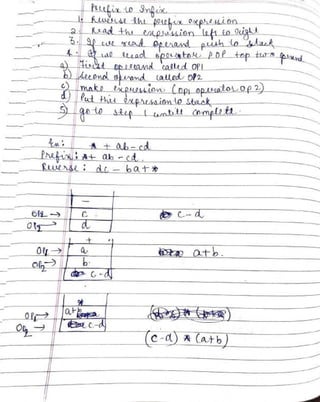 Prefix to Infix
1. Reverse the prefix expression
2. Read the expression left to right
3. If we read operand push to stack
4. If we read operator POP top two
a) First operand called OP1
b) Second operand called OP2
c) make expression (op1 operator op2)
d) Put this expression to stack
5) go to step 1 untill complete.
Ex: * + ab - cd
Prefix: *+ ab - cd.
Reverse: dc - ba + *
-
OP1 → c c - d
OP2 → d
+
OP1 → a a+b.
OP2 → b
c-d
*
OP1 → a+b
OP2 → c-d
(c-d) * (a+b)